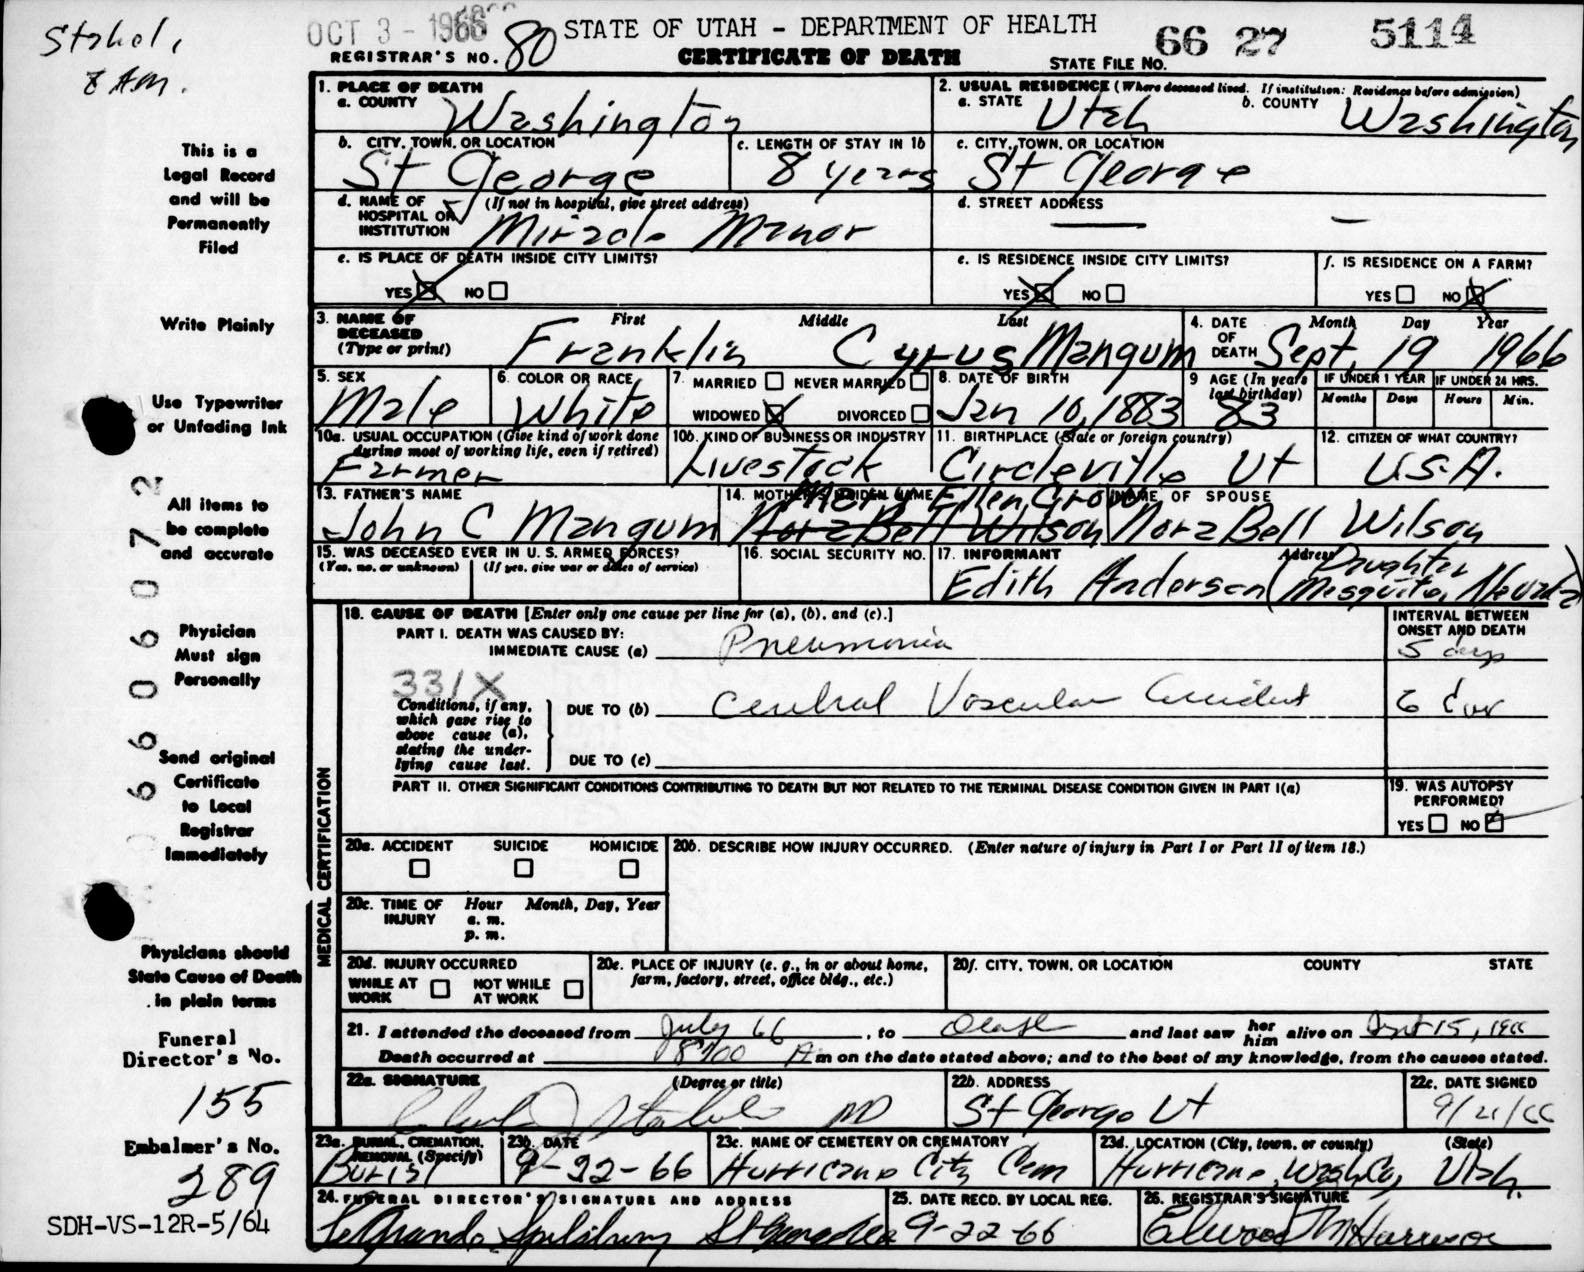 Stahel,
8 Am.
OCT 3 - 1966
STATE OF UTAH - DEPARTMENT OF HEALTH
REGISTRAR'S NO. 80
CERTIFICATE OF DEATH
66 27 5114
STATE FILE NO.
This is a
Legal Record
and will be
Permanently
Filed
Write Plainly
Use Typewriter
or Unfading Ink
All items to
be complete
and accurate
Physician
Must sign
Personally
Send original
Certificate
to Local
Registrar
Immediately
Physicians should
State Cause of Death
in plain terms
Funeral
Director's No.
155
Embalmer's No.
289
SDH-VS-12R-5/64
6606072
1. PLACE OF DEATH
a. COUNTY Washington
2. USUAL RESIDENCE (Where deceased lived. If institution: Residence before admission)
a. STATE Utah b. COUNTY Washington
b. CITY, TOWN, OR LOCATION St George
c. LENGTH OF STAY IN 1b 8 years
c. CITY, TOWN, OR LOCATION St George
d. NAME OF HOSPITAL OR INSTITUTION (If not in hospital, give street address) Miracle Manor
d. STREET ADDRESS — —
e. IS PLACE OF DEATH INSIDE CITY LIMITS?
YES NO
e. IS RESIDENCE INSIDE CITY LIMITS?
YES NO
f. IS RESIDENCE ON A FARM?
YES NO
3. NAME OF DECEASED (Type or print) First Middle Last
Franklin Cyrus Mangum
4. DATE OF DEATH Month Day Year
Sept, 19 1966
5. SEX Male
6. COLOR OR RACE White
7. MARRIED NEVER MARRIED
WIDOWED DIVORCED
8. DATE OF BIRTH Jan 10, 1883
9 AGE (In years last birthday) 83
IF UNDER 1 YEAR Months Days
IF UNDER 24 HRS. Hours Min.
10a. USUAL OCCUPATION (Give kind of work done during most of working life, even if retired)
Farmer
10b. KIND OF BUSINESS OR INDUSTRY
Livestock
11. BIRTHPLACE (State or foreign country)
Circleville Ut
12. CITIZEN OF WHAT COUNTRY?
U.S.A.
13. FATHER'S NAME
John C Mangum
14. MOTHER'S MAIDEN NAME
Mary Ellen
Nora Bell Wilson
NAME OF SPOUSE
Nora Bell Wilson
15. WAS DECEASED EVER IN U. S. ARMED FORCES?
(Yes, no, or unknown) (If yes, give war or dates of service)
16. SOCIAL SECURITY NO.
17. INFORMANT Address
Edith Anderson (Daughter Mesquite, Nevada)
MEDICAL CERTIFICATION
18. CAUSE OF DEATH [Enter only one cause per line for (a), (b), and (c).]
INTERVAL BETWEEN ONSET AND DEATH
PART I. DEATH WAS CAUSED BY:
IMMEDIATE CAUSE (a) Pneumonia 5 days
331X
Conditions, if any, which gave rise to above cause (a), stating the underlying cause last.
DUE TO (b) Cerebral Vascular Accident 6
DUE TO (c)
PART II. OTHER SIGNIFICANT CONDITIONS CONTRIBUTING TO DEATH BUT NOT RELATED TO THE TERMINAL DISEASE CONDITION GIVEN IN PART I(a)
19. WAS AUTOPSY PERFORMED?
YES NO
20a. ACCIDENT SUICIDE HOMICIDE
20b. DESCRIBE HOW INJURY OCCURRED. (Enter nature of injury in Part I or Part II of item 18.)
20c. TIME OF INJURY Hour Month, Day, Year
a. m.
p. m.
20d. INJURY OCCURRED
WHILE AT WORK NOT WHILE AT WORK
20e. PLACE OF INJURY (e. g., in or about home, farm, factory, street, office bldg., etc.)
20f. CITY, TOWN, OR LOCATION COUNTY STATE
21. I attended the deceased from July 66, to Death and last saw her him alive on Sept 15, 1966
Death occurred at 8:00 A m on the date stated above; and to the best of my knowledge, from the causes stated.
22a. SIGNATURE (Degree or title)
MD
22b. ADDRESS
St George Ut
22c. DATE SIGNED
9/21/66
23a. BURIAL, CREMATION, REMOVAL (Specify)
Burial
23b. DATE
9-22-66
23c. NAME OF CEMETERY OR CREMATORY
Hurricane City Cem
23d. LOCATION (City, town, or county) (State)
Hurricane, Wash Co, Utah.
24. FUNERAL DIRECTOR'S SIGNATURE AND ADDRESS
LeGrande Spilsbury St George
25. DATE RECD. BY LOCAL REG.
9-22-66
26. REGISTRAR'S SIGNATURE
Elwood